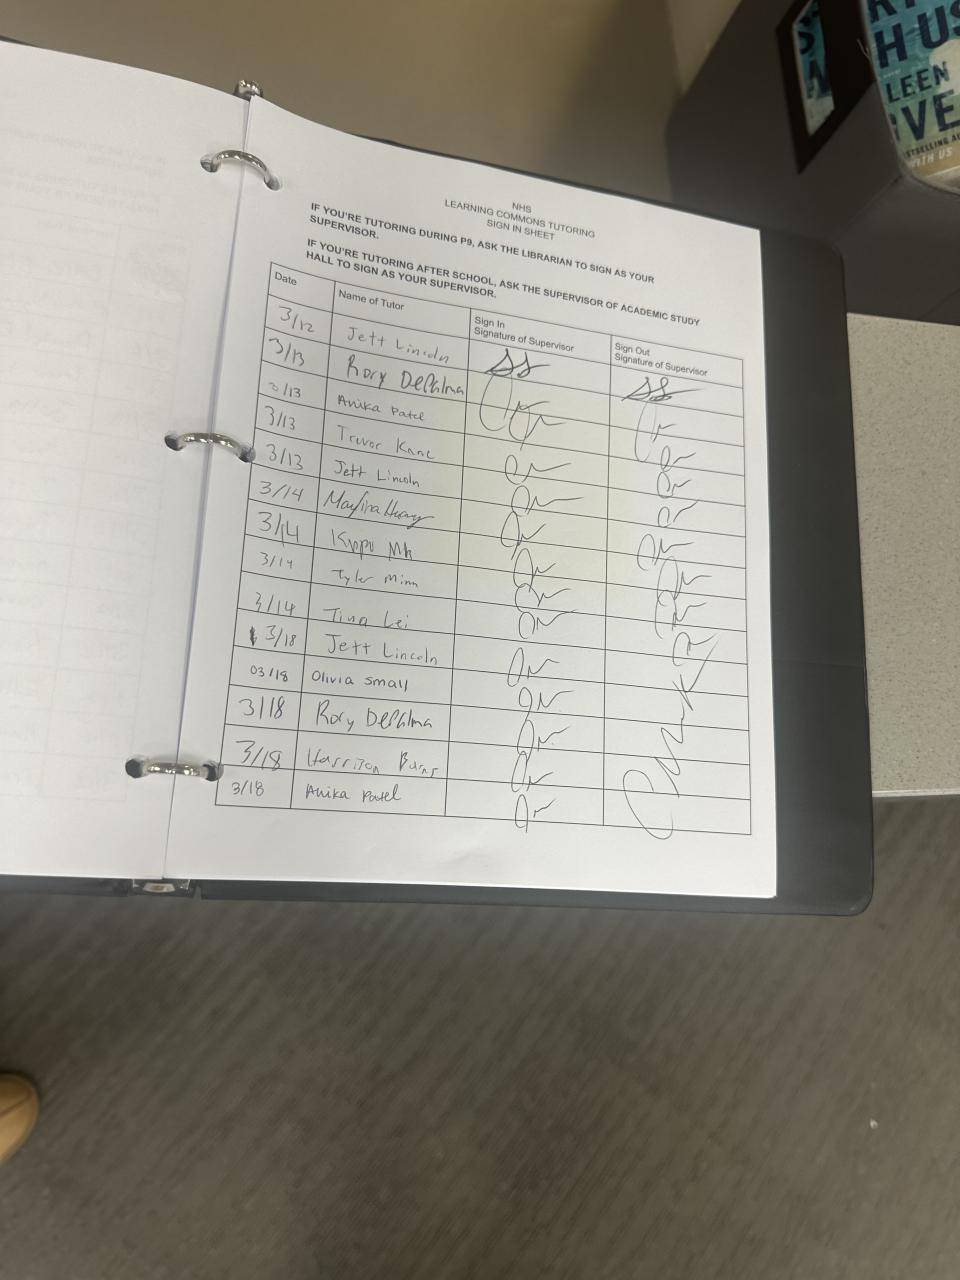 NHS
LEARNING COMMONS TUTORING
SIGN IN SHEET
IF YOU'RE TUTORING DURING P9, ASK THE LIBRARIAN TO SIGN AS YOUR
SUPERVISOR.
IF YOU'RE TUTORING AFTER SCHOOL, ASK THE SUPERVISOR OF ACADEMIC STUDY
HALL TO SIGN AS YOUR SUPERVISOR.
Date Name of Tutor Sign In Signature of Supervisor Sign Out Signature of Supervisor
3/12 Jett Lincoln SS SS
3/13 Rory DePalma
3/13 Anika Patel
3/13 Trevor Kane
3/13 Jett Lincoln
3/14
3/14
3/14 Tyler Minn
3/14 Tina Lei
3/18 Jett Lincoln
03/18 Olivia Small
3/18 Rory DePalma
3/18 Harrison Burns
3/18 Anika Patel
H US
LEEN
VE
WITH US